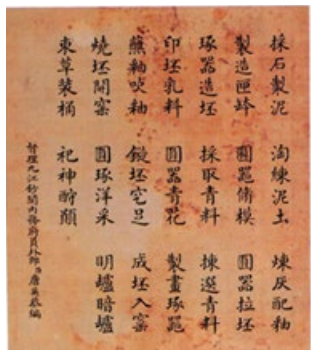 採石製泥 淘練泥土 煉灰配釉
製造匣鉢 圓器修模 圓器拉坯
琢器造坯 採取青料 揀選青料
印坯乳料 圓器青花 製畫琢器
蘸釉吹釉 鏇坯穵足 成坯入窯
燒坯開窯 圓琢洋采 明爐暗爐
束草裝桶 祀神酧願
督理九江鈔關內務府員外郎臣唐英恭編